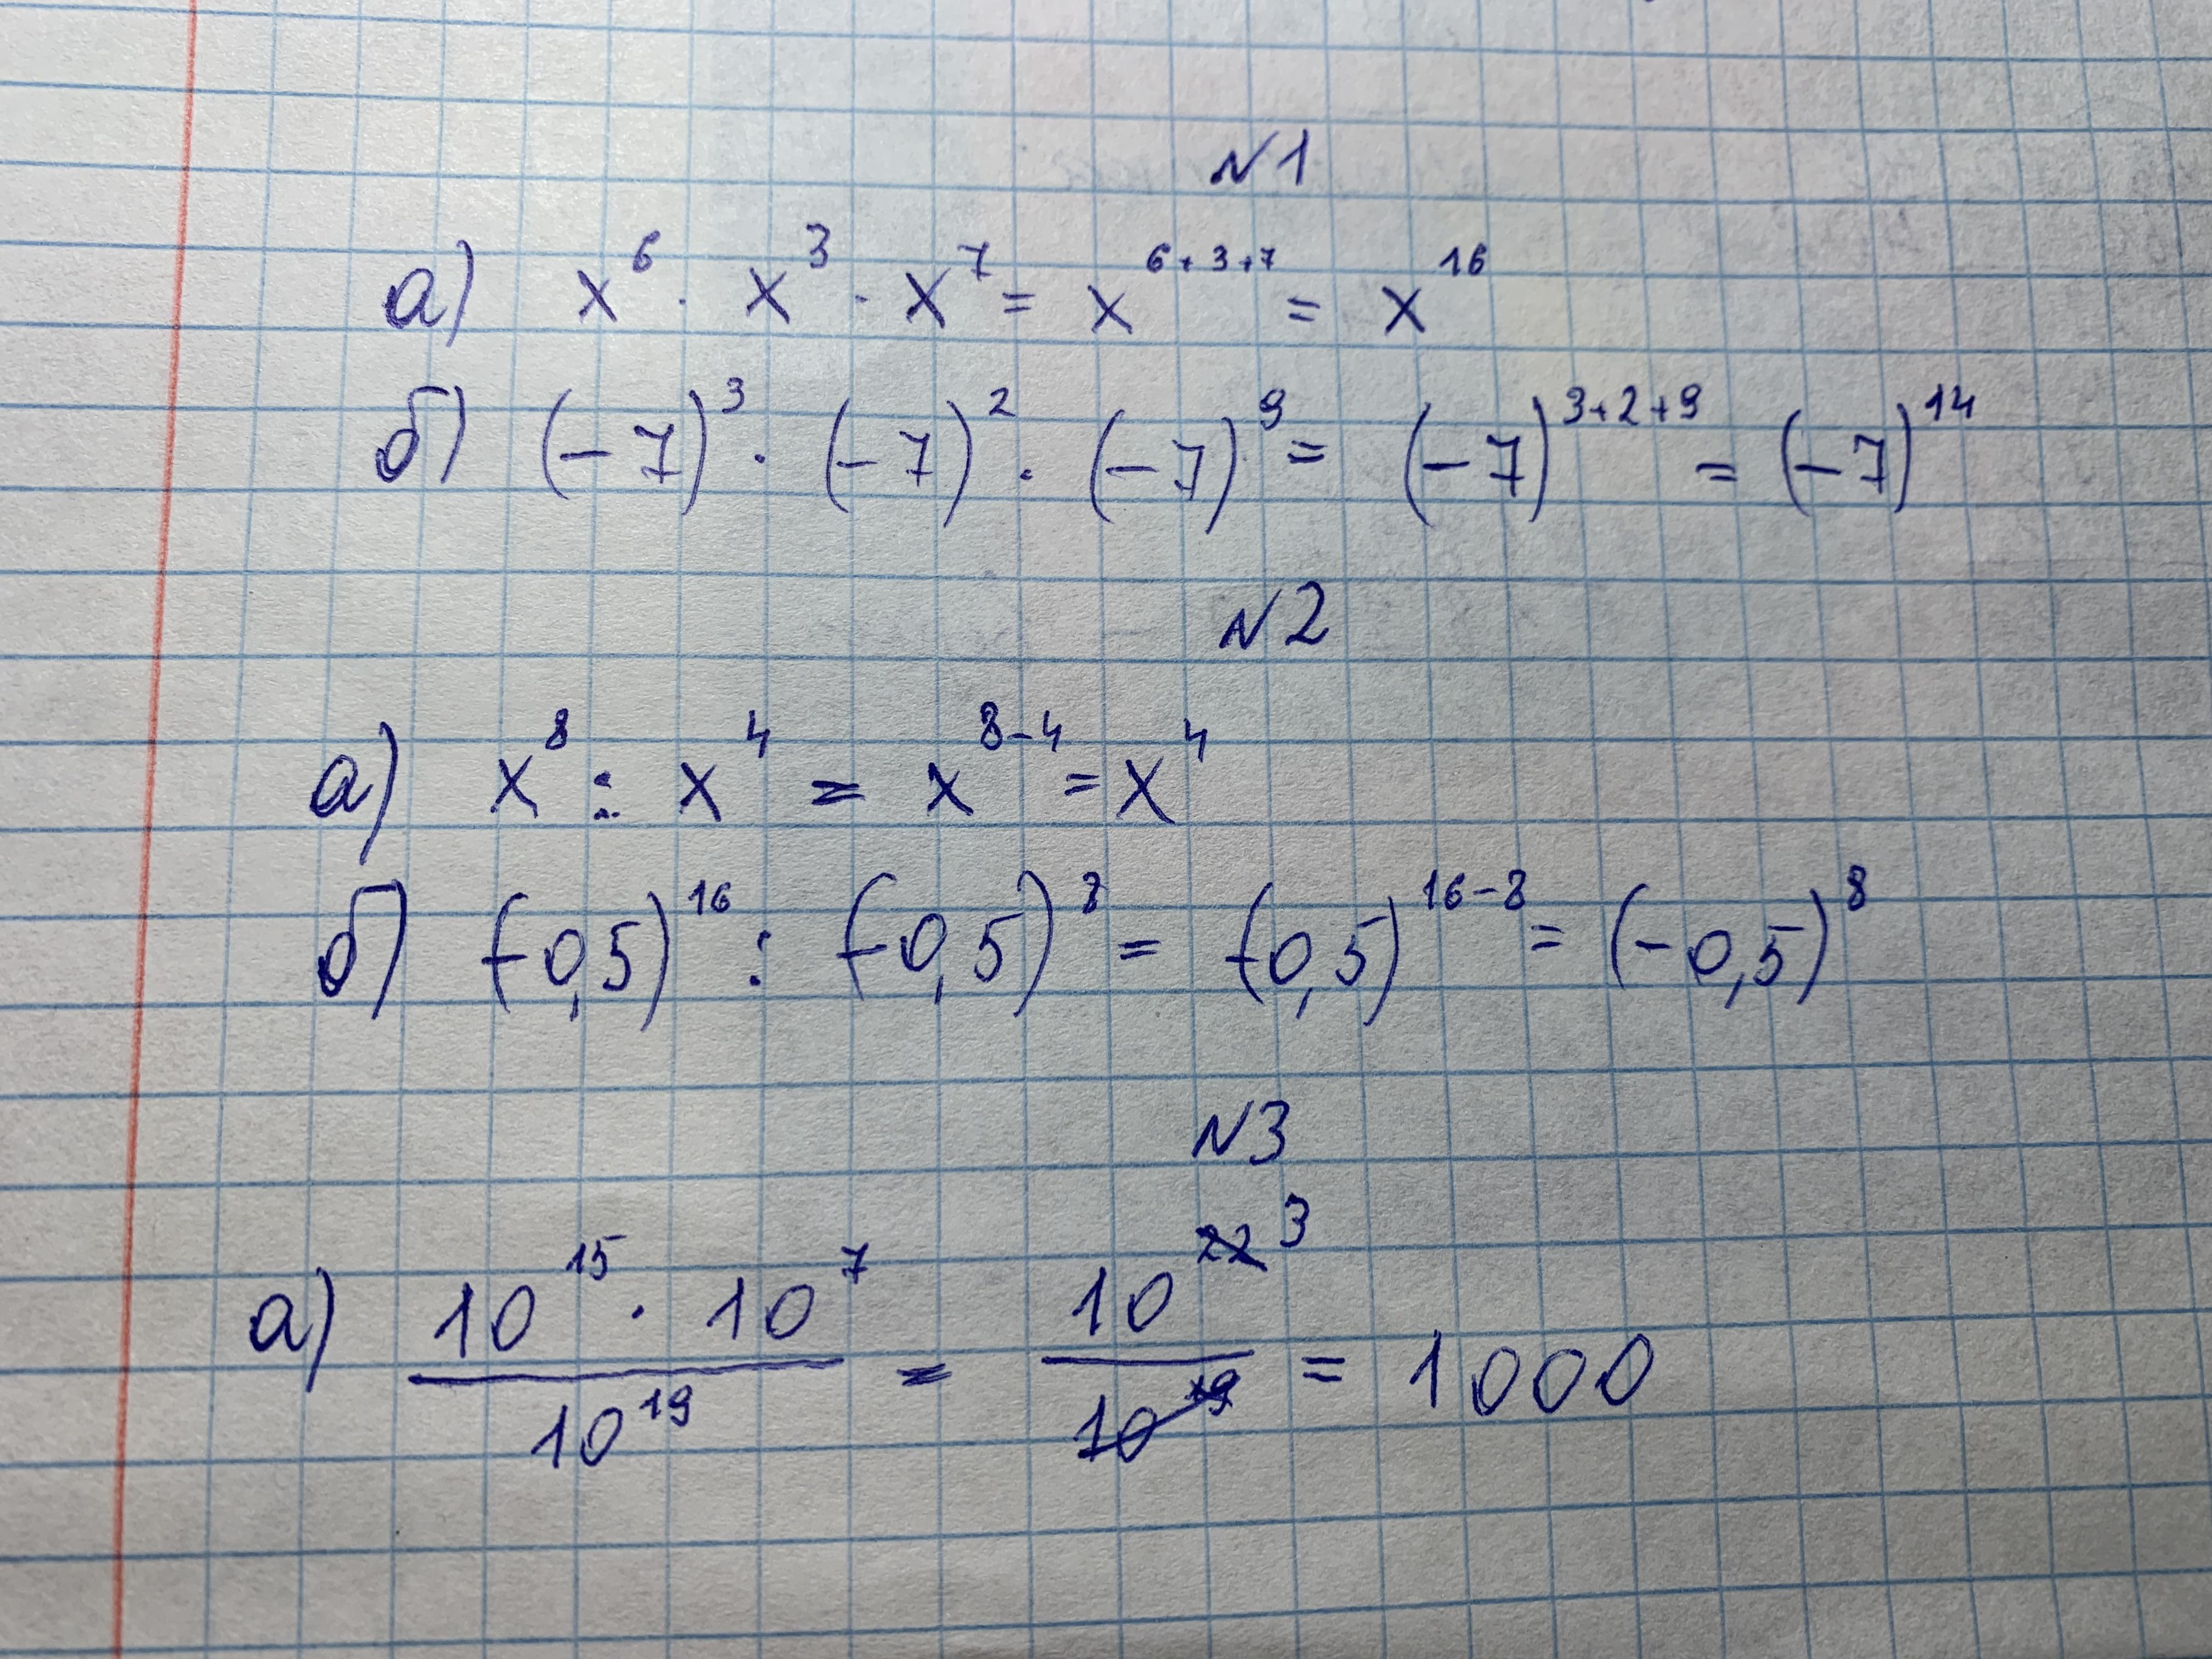 №1
а) x⁶ · x³ · x⁷ = x⁶⁺³⁺⁷ = x¹⁶
б) (-7)³ · (-7)² · (-7)⁹ = (-7)³⁺²⁺⁹ = (-7)¹⁴
№2
а) x⁸ : x⁴ = x⁸⁻⁴ = x⁴
б) (-0,5)¹⁶ : (-0,5)⁸ = (-0,5)¹⁶⁻⁸ = (-0,5)⁸
№3
22 3
а) 10¹⁵ · 10⁷ / 10¹⁹ = 10 / 10¹⁹ = 1000